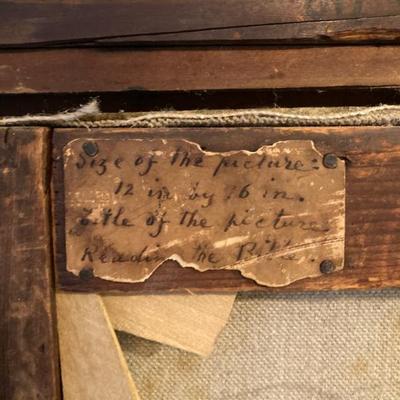 Size of the picture:
12 in by 16 in.
Title of the picture
Reading the Bible.